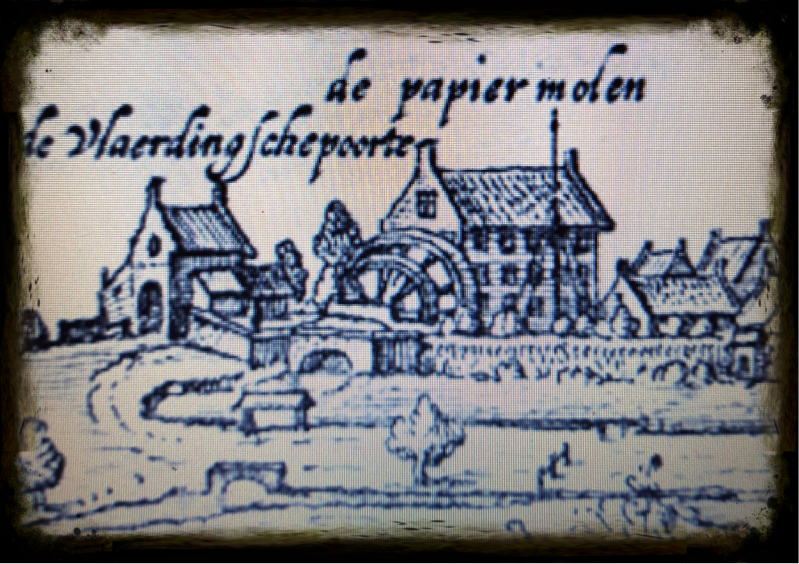 de papier molen
de Vlaerdingschepoorte